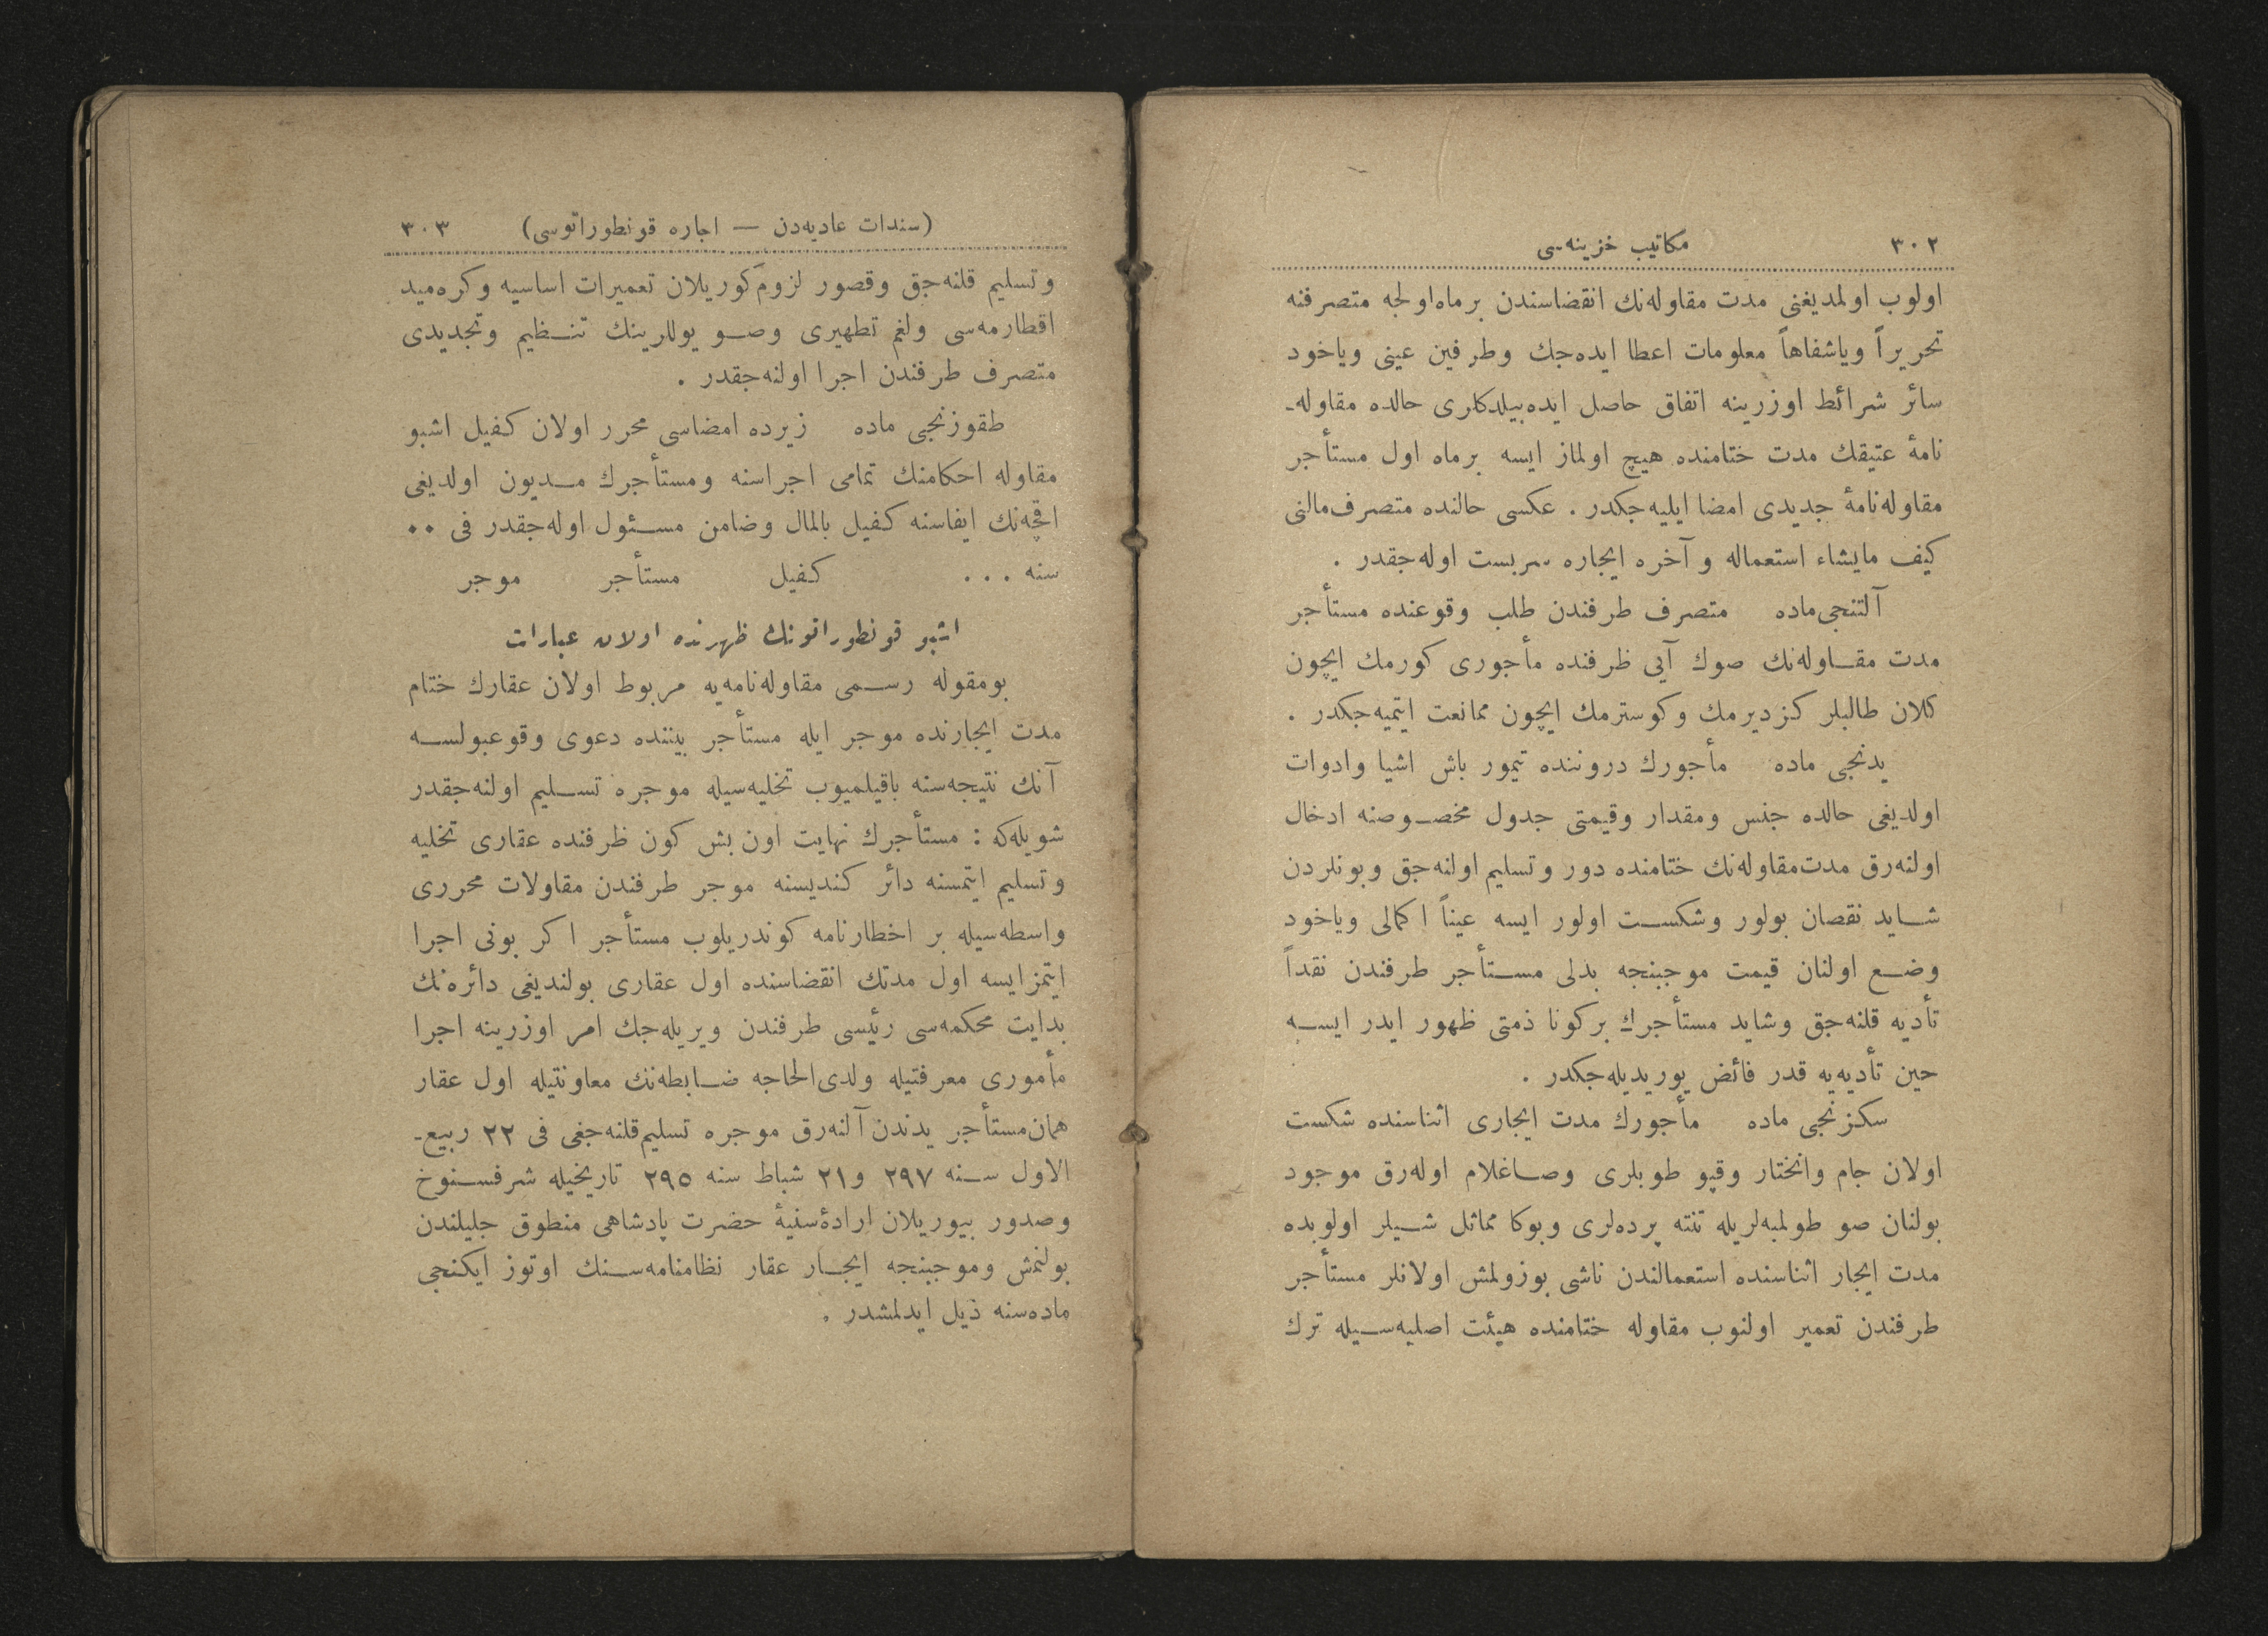 ٣٠٢ مكاتيب خزينه‌سی
اولوب اولمديغنی مدت مقاوله‌نك انقضاسندن برماه‌اولجه متصرفنه
تحريراً وياشفاهاً معلومات اعطا ايده‌جك وطرفين عينی وياخود
سائر شرائط اوزرينه اتفاق حاصل ايده‌بيلدكلری حالده مقاوله‌ـ
نامهٔ عتيقك مدت ختامنده هيچ اولماز ايسه برماه اول مستأجر
مقاوله‌نامهٔ جديدی امضا ايليه‌جكدر . عكسی حالنده متصرف‌مالنی
كيف مايشاء استعماله و آخره ايجاره سربست اوله‌جقدر .
آلتنجی‌ماده متصرف طرفندن طلب وقوعنده مستأجر
مدت مقـاوله‌نك صوك آيی ظرفنده مأجوری كورمك ايچون
كلان طالبلر كزديرمك وكوسترمك ايچون ممانعت ايتميه‌جكدر .
يدنجی ماده مأجورك دروننده تيمور باش اشيا وادوات
اولديغی حالده جنس ومقدار وقيمتی جدول مخصـوصنه ادخال
اولنه‌رق مدت‌مقاوله‌نك ختامنده دور وتسليم اولنه‌جق وبونلردن
شـايد نقصان بولور وشكسـت اولور ايسه عيناً اكمالی وياخود
وضـع اولنان قيمت موجبنجه بدلی مسـتأجر طرفندن نقداً
تأديه قلنه‌جق وشايد مستأجرك بركونا ذمتی ظهور ايدر ايسـه
حين تأديه‌يه قدر فائض يوريديله‌جكدر .
سكزنجی ماده مأجورك مدت ايجاری اثناسنده شكست
اولان جام وانختار وقپو طوبلری وصـاغلام اوله‌رق موجود
بولنان صو طولمبه‌لريله تنته پرده‌لری وبوكا مماثل شـيلر اولوبده
مدت ايجار اثناسنده استعمالندن ناشی بوزولمش اولانلر مستأجر
طرفندن تعمير اولنوب مقاوله ختامنده هيئت اصليه‌سـيله ترك
(سندات عاديه‌دن — اجاره قونطوراتوسی) ٣٠٣
وتسليم قلنه‌جق وقصور لزوم‌كوريلان تعميرات اساسيه وكره‌ميد
اقطارمه‌سی ولغم تطهيری وصـو يوللرينك تنـظيم وتجديدی
متصرف طرفندن اجرا اولنه‌جقدر .
طقوزنجی ماده زيرده امضاسی محرر اولان كفيل اشبو
مقاوله احكامنك تمامی اجراسنه ومستأجرك مـديون اولديغی
اقچه‌نك ايفاسنه كفيل بالمال وضامن مسـئول اوله‌جقدر فی ٠٠
سنه ... كفيل مستأجر موجر
اشبو قونطوراتونك ظهرنده اولان عبارات
بومقوله رسـمی مقاوله‌نامه‌يه مربوط اولان عقارك ختام
مدت ايجارنده موجر ايله مستأجر بيننده دعوی وقوعبولسـه
آنك نتيجه‌سنه باقيلميوب تخليه‌سيله موجره تسـليم اولنه‌جقدر
شويله‌كه : مستأجرك نهايت اون بش كون ظرفنده عقاری تخليه
وتسليم ايتمسنه دائر كنديسنه موجر طرفندن مقاولات محرری
واسطه‌سيله بر اخطارنامه كوندريلوب مستأجر اكر بونی اجرا
ايتمزايسه اول مدتك انقضاسنده اول عقاری بولنديغی دائره‌نك
بدايت محكمه‌سی رئيسی طرفندن ويريله‌جك امر اوزرينه اجرا
مأموری معرفتيله ولدی‌الحاجه ضـابطه‌نك معاونتيله اول عقار
همان‌مستأجر يدندن آلنه‌رق موجره تسليم‌قلنه‌جغی فی ٢٢ ربيع‌ـ
الاول سـنه ٢٩٧ و٢١ شباط سنه ٢٩٥ تاريخيله شرفسـنوخ
وصدور بيوريلان ارادهٔ‌سنيهٔ حضرت پادشاهی منطوق جليلندن
بولنمش وموجبنجه ايجـار عقار نظامنامه‌سـنك اوتوز ايكنجی
ماده‌سنه ذيل ايدلمشدر .